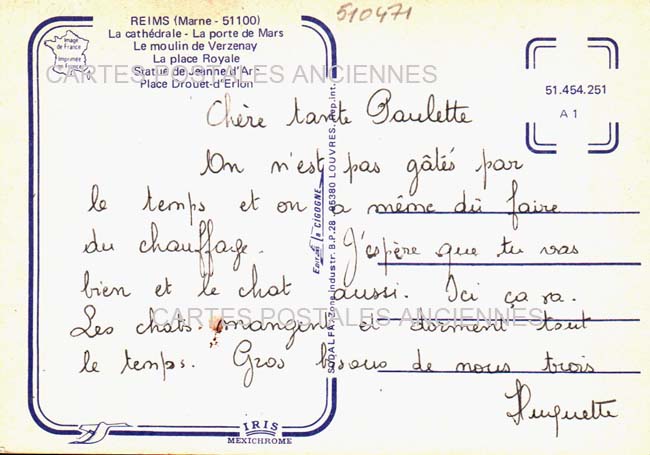 510471
REIMS (Marne - 51100)
La cathédrale - La porte de Mars
Le moulin de Verzenay
La place Royale
Statue de Jeanne d'Arc
Place Drouet-d'Erlon
Image de France
Imprimée en France
51.454.251
A 1
CARTES POSTALES ANCIENNES
Chère tante Paulette
On n'est pas gâtés par
le temps et on a même dû faire
du chauffage. J'espère que tu vas
bien et le chat aussi. Ici ça va.
Les chats mangent et dorment tout
le temps. Gros bisous de nous trois
Huguette
CARTES POSTALES ANCIENNES
Editions la CIGOGNE
SODALFA, Zone Industr. B.P. 28 - 95380 LOUVRES. Rep. int.
IRIS
MEXICHROME